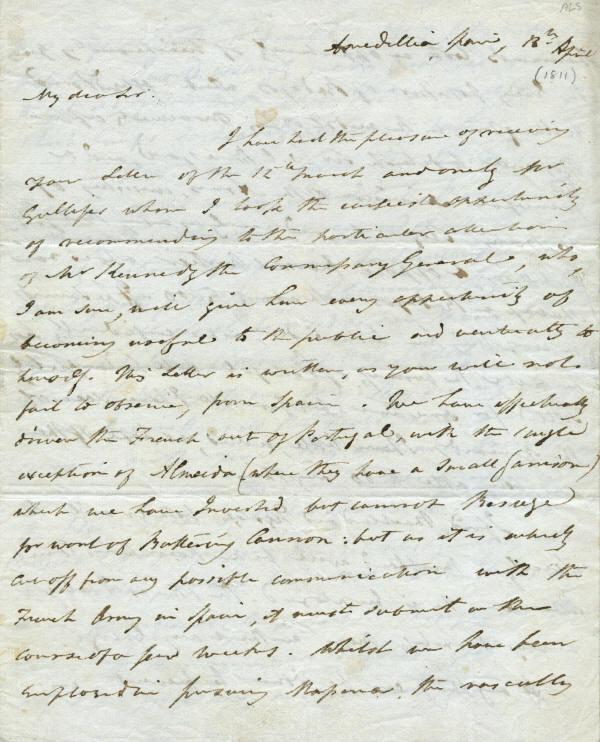 ALS
Spain, 13th April
(1811)
My dear Sir.
I have had the pleasure of receiving
your Letter of the 12th March and only Mr
whom I took the earliest opportunity
of recommending to the particular attention
of Mr Kennedy the Commissary General, who,
I am sure, will give him every opportunity of
becoming useful to the public and eventually to
himself. This Letter is written, as you will not
fail to observe, from Spain. We have effectually
driven the French out of Portugal, with the single
exception of Almeida (where they have a small Garrison)
which we have Invested but cannot Besiege
for want of Battering Cannon: but as it is entirely
cut off from any possible communication with the
French Army in Spain, it must submit in the
course of a few weeks. Whilst we have been
employed in pursuing Massena, the rascally